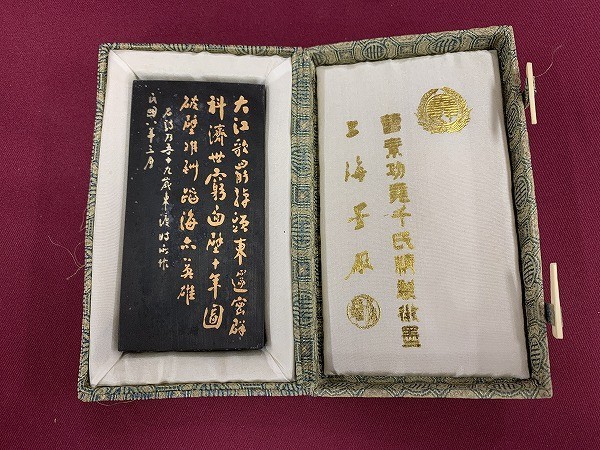 曹素功堯千氏精製徽墨
上海墨厰
大江歌罷掉頭東邃密群
科濟世窮面壁十年圖
破壁難酬蹈海亦英雄
右詩乃吾十九歲東渡時所作
民國八年三月